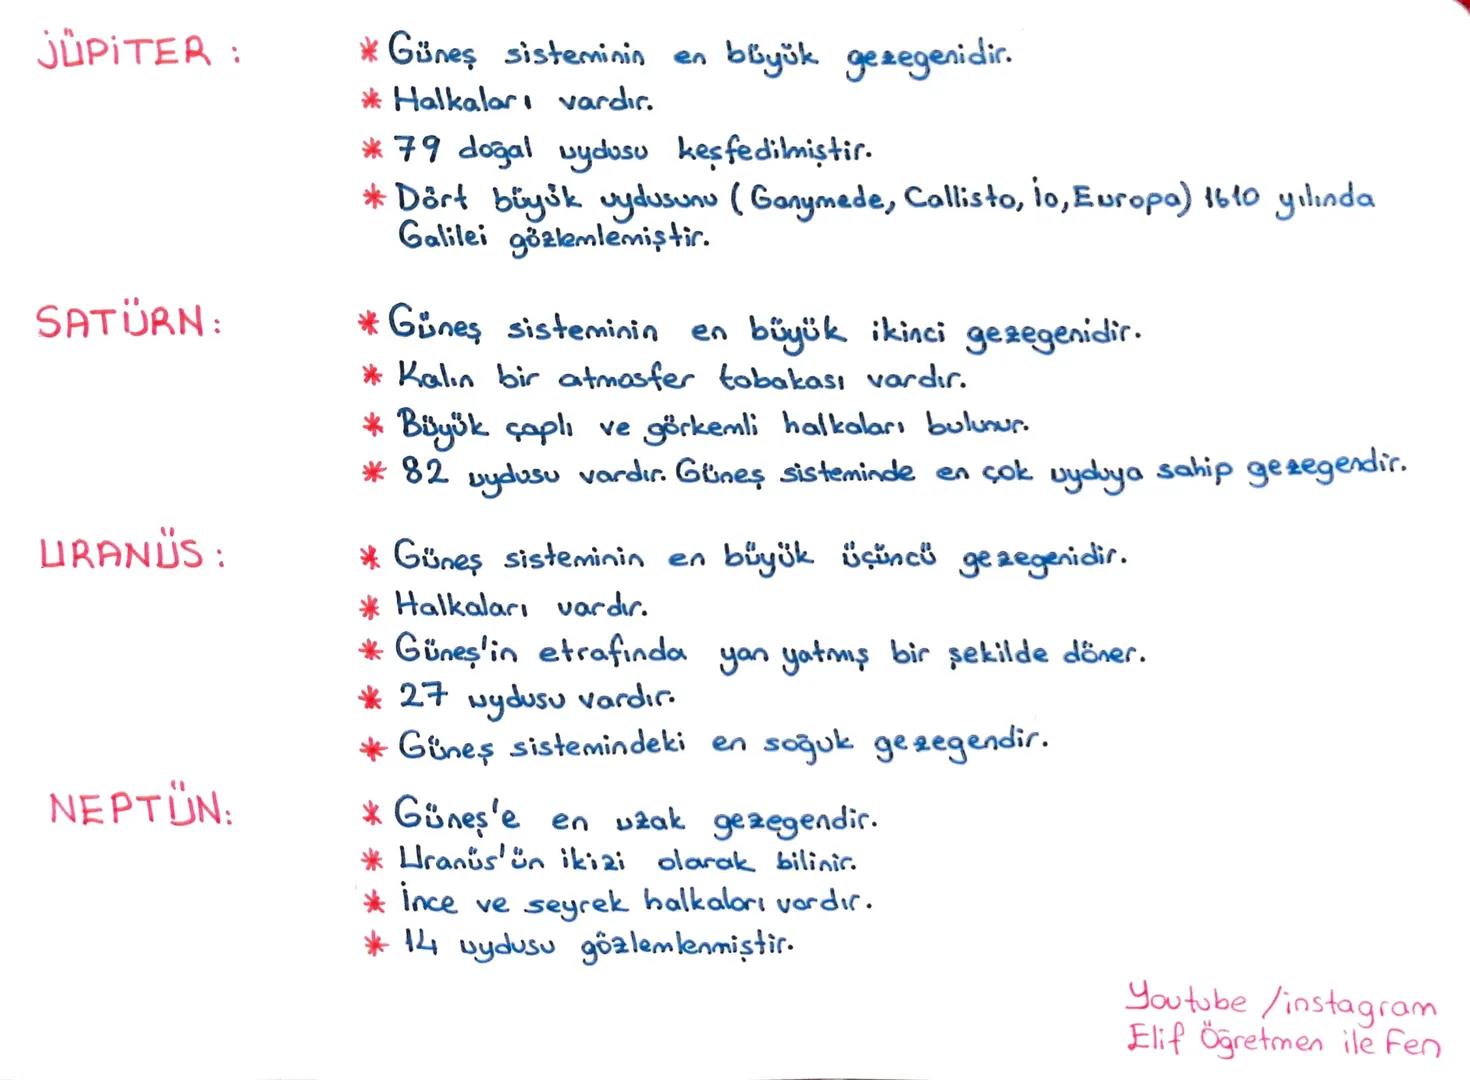 JÜPİTER :
* Güneş sisteminin en büyük gezegenidir.
* Halkaları vardır.
* 79 doğal uydusu keşfedilmiştir.
* Dört büyük uydusunu (Ganymede, Callisto, İo, Europa) 1610 yılında
Galilei gözlemlemiştir.
SATÜRN:
* Güneş sisteminin en büyük ikinci gezegenidir.
* Kalın bir atmosfer tabakası vardır.
* Büyük çaplı ve görkemli halkaları bulunur.
* 82 uydusu vardır. Güneş sisteminde en çok uyduya sahip gezegendir.
URANÜS :
* Güneş sisteminin en büyük üçüncü gezegenidir.
* Halkaları vardır.
* Güneş'in etrafında yan yatmış bir şekilde döner.
* 27 uydusu vardır.
* Güneş sistemindeki en soğuk gezegendir.
NEPTÜN:
* Güneş'e en uzak gezegendir.
* Uranüs'ün ikizi olarak bilinir.
* İnce ve seyrek halkaları vardır.
* 14 uydusu gözlemlenmiştir.
Youtube /instagram
Elif Öğretmen ile Fen